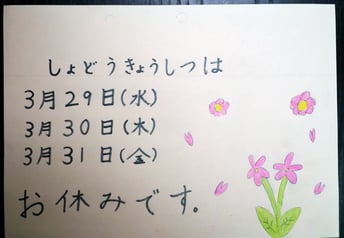 しょどうきょうしつは
3月29日(水)
3月30日(木)
3月31日(金)
お休みです。